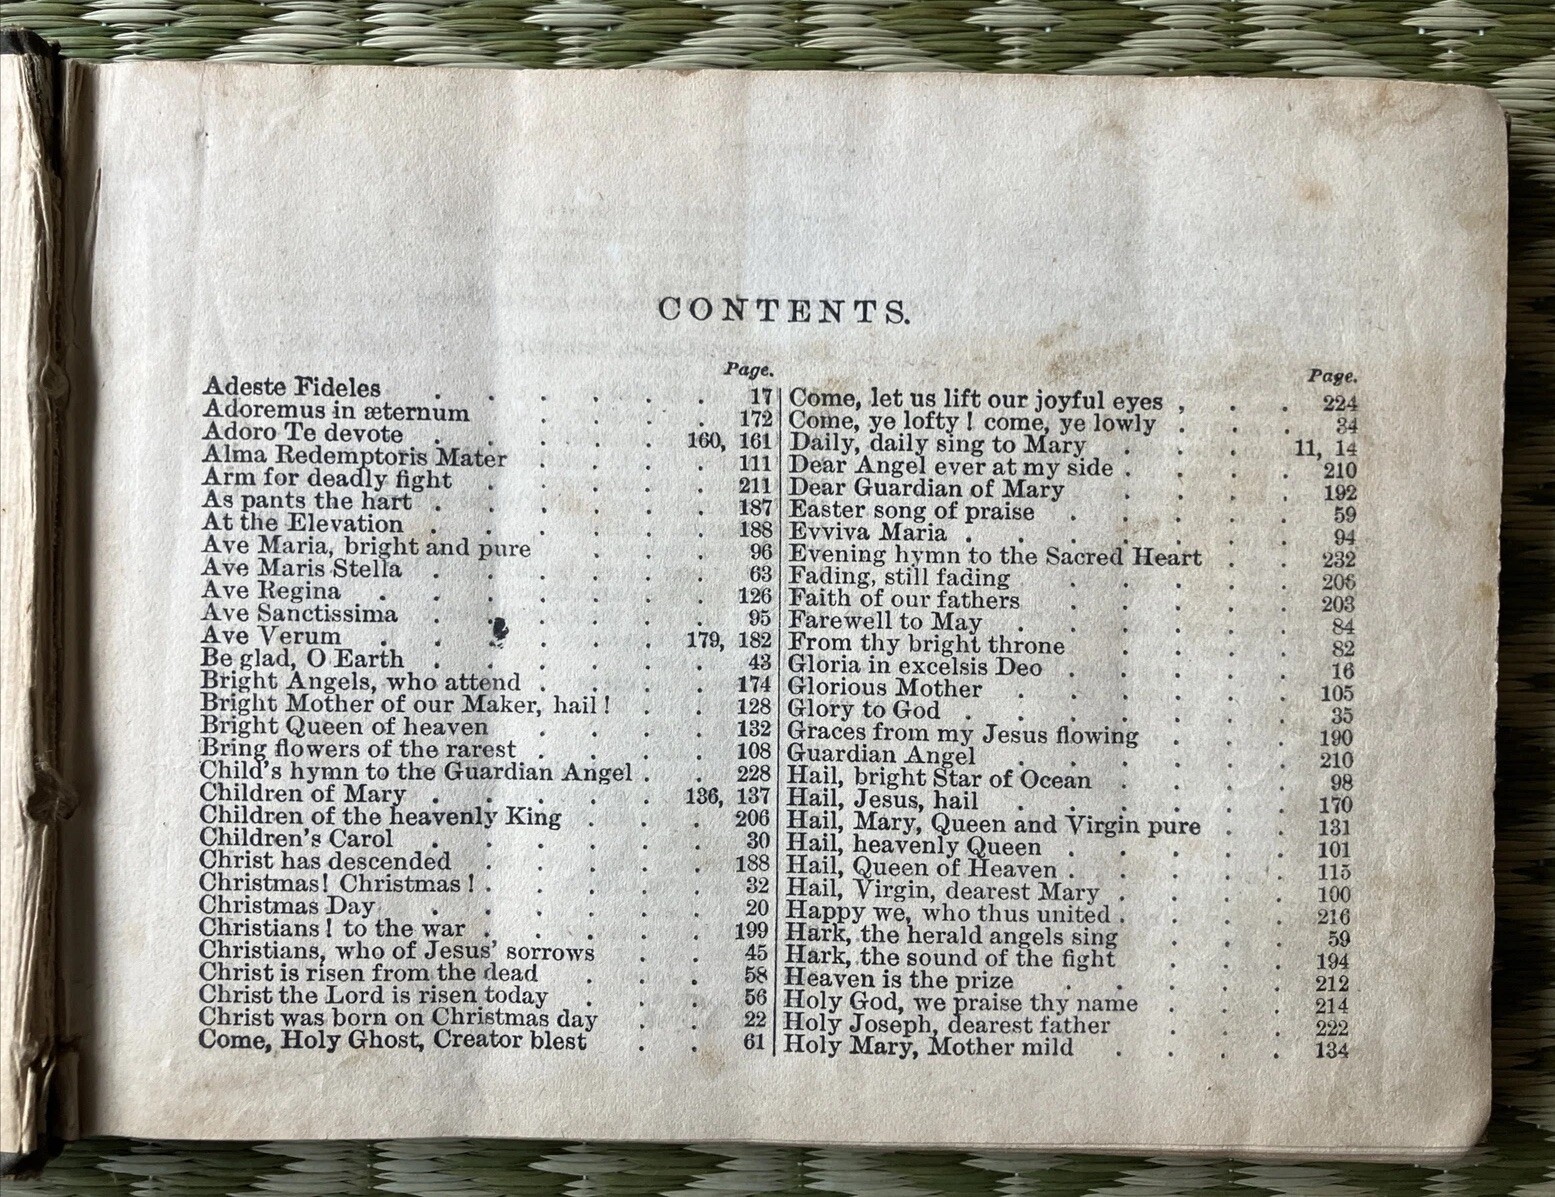 CONTENTS.
Page.
Adeste Fideles . . . . . . 17
Adoremus in æternum . . . . 172
Adoro Te devote . . . . . 160, 161
Alma Redemptoris Mater . . . . 111
Arm for deadly fight . . . . . 211
As pants the hart . . . . . . 187
At the Elevation . . . . . . 188
Ave Maria, bright and pure . . . 96
Ave Maris Stella . . . . . . 63
Ave Regina . . . . . . . 126
Ave Sanctissima . . . . . . 95
Ave Verum . . . . . . 179, 182
Be glad, O Earth . . . . . . 43
Bright Angels, who attend . . . . 174
Bright Mother of our Maker, hail! . . 128
Bright Queen of heaven . . . . 132
Bring flowers of the rarest . . . . 108
Child's hymn to the Guardian Angel . . 228
Children of Mary . . . . . 136, 137
Children of the heavenly King . . . 206
Children's Carol . . . . . . 30
Christ has descended . . . . . 188
Christmas! Christmas! . . . . . 32
Christmas Day . . . . . . 20
Christians! to the war . . . . . 199
Christians, who of Jesus' sorrows . . 45
Christ is risen from the dead . . . 58
Christ the Lord is risen today . . . 56
Christ was born on Christmas day . . 22
Come, Holy Ghost, Creator blest . . 61
Page.
Come, let us lift our joyful eyes , . . 224
Come, ye lofty! come, ye lowly . . . 34
Daily, daily sing to Mary . . . 11, 14
Dear Angel ever at my side . . . . 210
Dear Guardian of Mary . . . . 192
Easter song of praise . . . . . 59
Evviva Maria . . . . . . . 94
Evening hymn to the Sacred Heart . . 232
Fading, still fading . . . . . 206
Faith of our fathers . . . . . 203
Farewell to May . . . . . . 84
From thy bright throne . . . . 82
Gloria in excelsis Deo . . . . . 16
Glorious Mother . . . . . . 105
Glory to God . . . . . . . 35
Graces from my Jesus flowing . . . 190
Guardian Angel . . . . . . 210
Hail, bright Star of Ocean . . . . 98
Hail, Jesus, hail . . . . . . 170
Hail, Mary, Queen and Virgin pure . . 131
Hail, heavenly Queen . . . . . 101
Hail, Queen of Heaven . . . . . 115
Hail, Virgin, dearest Mary . . . . 100
Happy we, who thus united . . . . 216
Hark, the herald angels sing . . . 59
Hark, the sound of the fight . . . 194
Heaven is the prize . . . . . 212
Holy God, we praise thy name . . . 214
Holy Joseph, dearest father . . . 222
Holy Mary, Mother mild . . . . 134